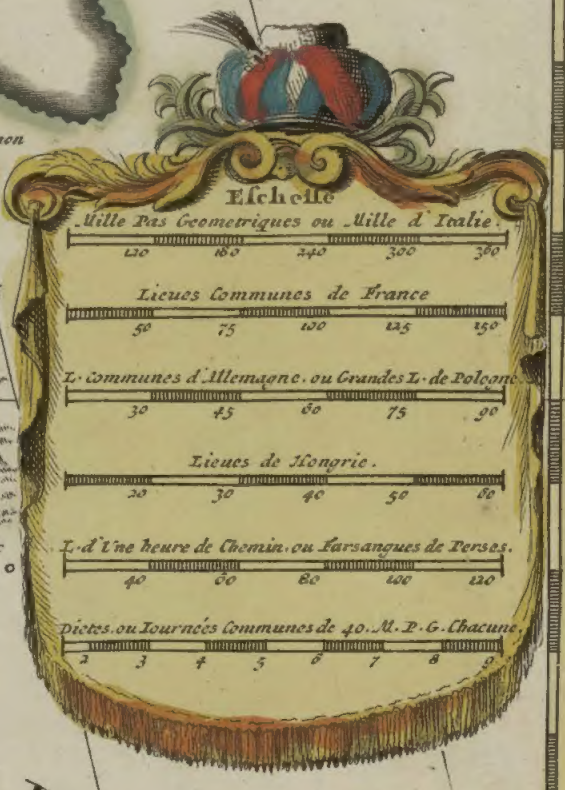 non
Eschelle
Mille Pas Geometriques ou Mille d'Italie.
120 180 240 300 360
Lieues Communes de France
50 75 100 125 150
L. Communes d'Allemagne. ou Grandes L. de Pologne.
30 45 60 75 90
Lieues de Hongrie.
20 30 40 50 60
L. d'Une heure de Chemin. ou Farsangues de Perses.
40 60 80 100 120
Dietes. ou Iournées Communes de 40. M. P. G. Chacune.
2 3 4 5 6 7 8 9